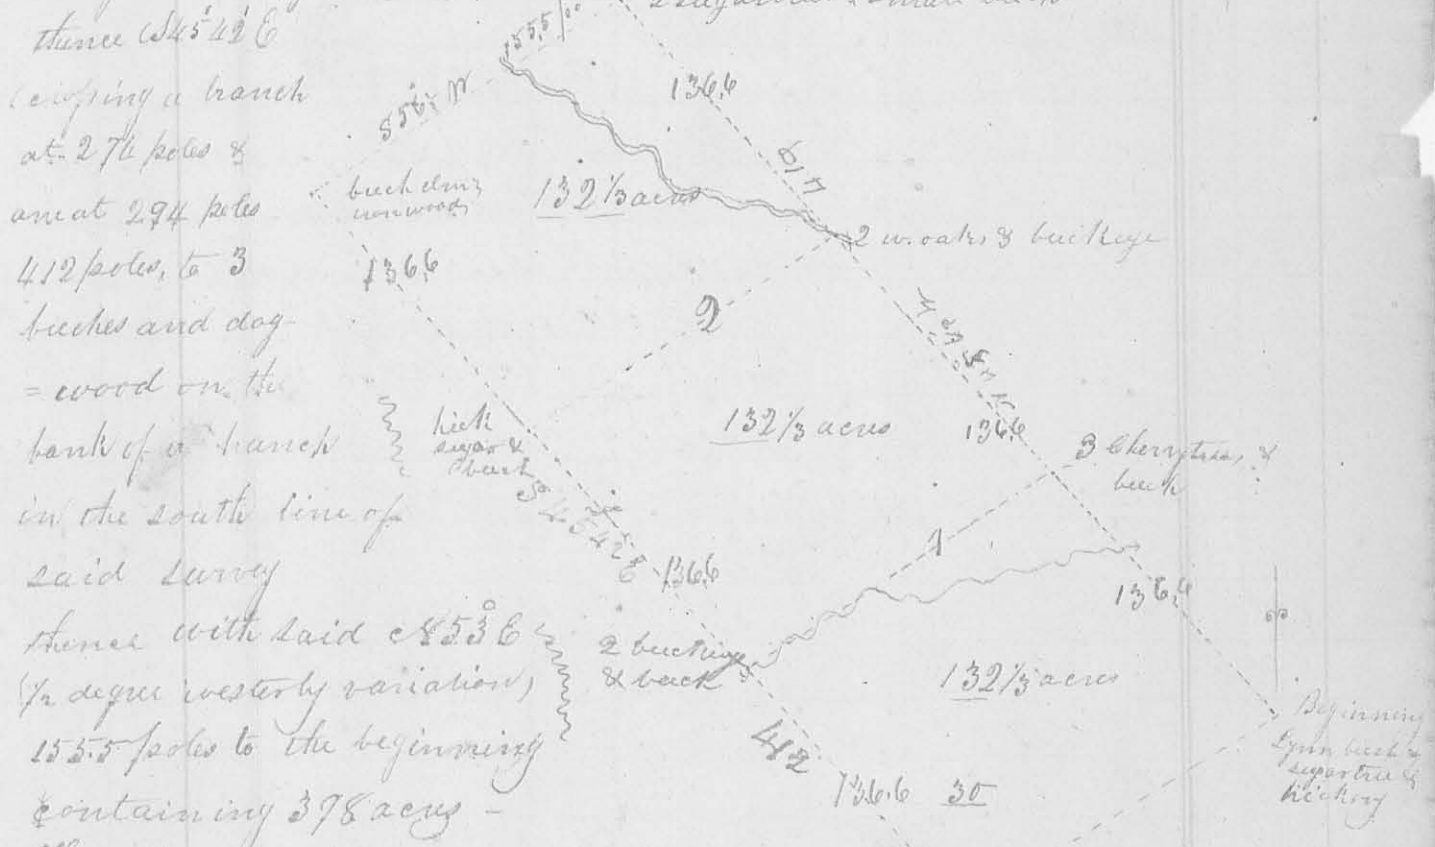 thence S 45° 42' E
(crossing a branch
at 276 poles &
an at 294 poles
412 poles, to 3
beeches and dog-
= wood on the
bank of a branch
in the south line of
said survey
thence with said N 53° E
(1/2 degree westerly variation)
155.5 poles to the beginning
containing 378 acres -
155.5/00
136.6
S 56½ W
417
beech elm &
ironwoods
132 1/3 acres
2 w. oaks & buckeye
136.6
2
hick
sugar &
beech
132 1/3 acres
136.6
3 Cherrytrees &
beech
S 45 42 E
1
136.6
136.6
2 buckeyes
& beech
132 1/3 acres
412
136.6 30
Beginning
Lynn beech &
sugartree &
hickory